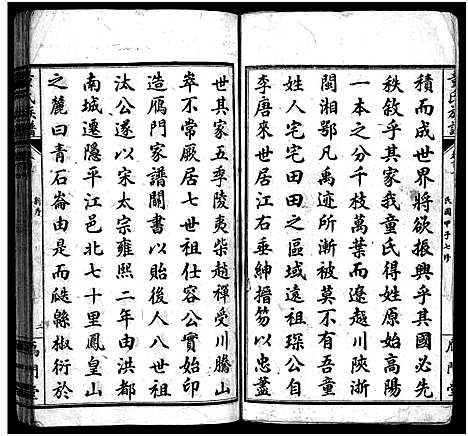 童氏族譜
民國甲子七修
雁門堂
積而成世界將欲振興乎其國必先
秩敘乎其家我童氏得姓原始高陽
一本之分千枝萬葉而趙川陝浙
閩湘鄂凡禹迹所漸被不有吾童
姓人宅宅田田之區域遠祖琛公自
李唐來世居江右垂紳搢笏以忠藎
世其家五季陵夷柴趙禪受川騰山
崒不常厥居七世祖仕容公實始印
造雁門家譜關書以貽後人八世祖
汰公遂以宋太宗雍熙二年由洪都
南城遷隱平江邑北七十里鳳皇山
之麓曰青石崙由是而瓞緜椒衍於
氏族譜
新序
二
雁門堂